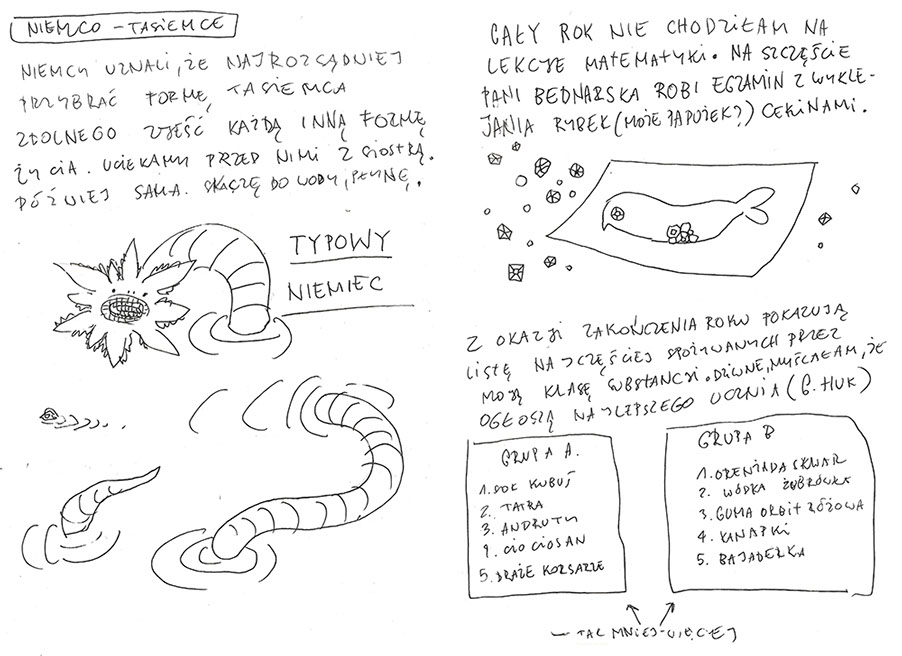 NIEMCO - TASIEMCE
NIEMCY UZNALI, ŻE NAJROZSĄDNIEJ
PRZYBRAĆ FORMĘ TASIEMCA
ZDOLNEGO ZJEŚĆ KAŻDĄ INNĄ FORMĘ
ŻYCIA. UCIEKAMY PRZED NIMI Z SIOSTRĄ.
PÓŹNIEJ SAMA. SKACZĘ DO WODY, PŁYNĘ.
TYPOWY
NIEMIEC
CAŁY ROK NIE CHODZIŁAM NA
LEKCJE MATEMATYKI. NA SZCZĘŚCIE
PANI BEDNARSKA ROBI EGZAMIN Z WYKLE-
JANIA RYBEK (MOŻE PAPUŻEK?) CEKINAMI.
Z OKAZJI ZAKOŃCZENIA ROKU POKAZUJĄ
LISTĘ NAJCZĘŚCIEJ SPOŻYWANYCH PRZEZ
MOJĄ KLASĘ SUBSTANCJI. DZIWNE, MYŚLAŁAM, ŻE
OGŁOSZĄ NAJLEPSZEGO UCZNIA (G. HUK)
GRUPA A.
1. SOK KUBUŚ
2. TATRA
3. ANDRUTY
4. CIOCIOSAN
5. DRAŻE KORSARZE
GRUPA B
1. ORENŻADA SKWAR
2. WÓDKA ŻUBRÓWKA
3. GUMA ORBIT RÓŻOWA
4. KANAPKI
5. BAJADERKA
- TAK MNIEJ-WIĘCEJ